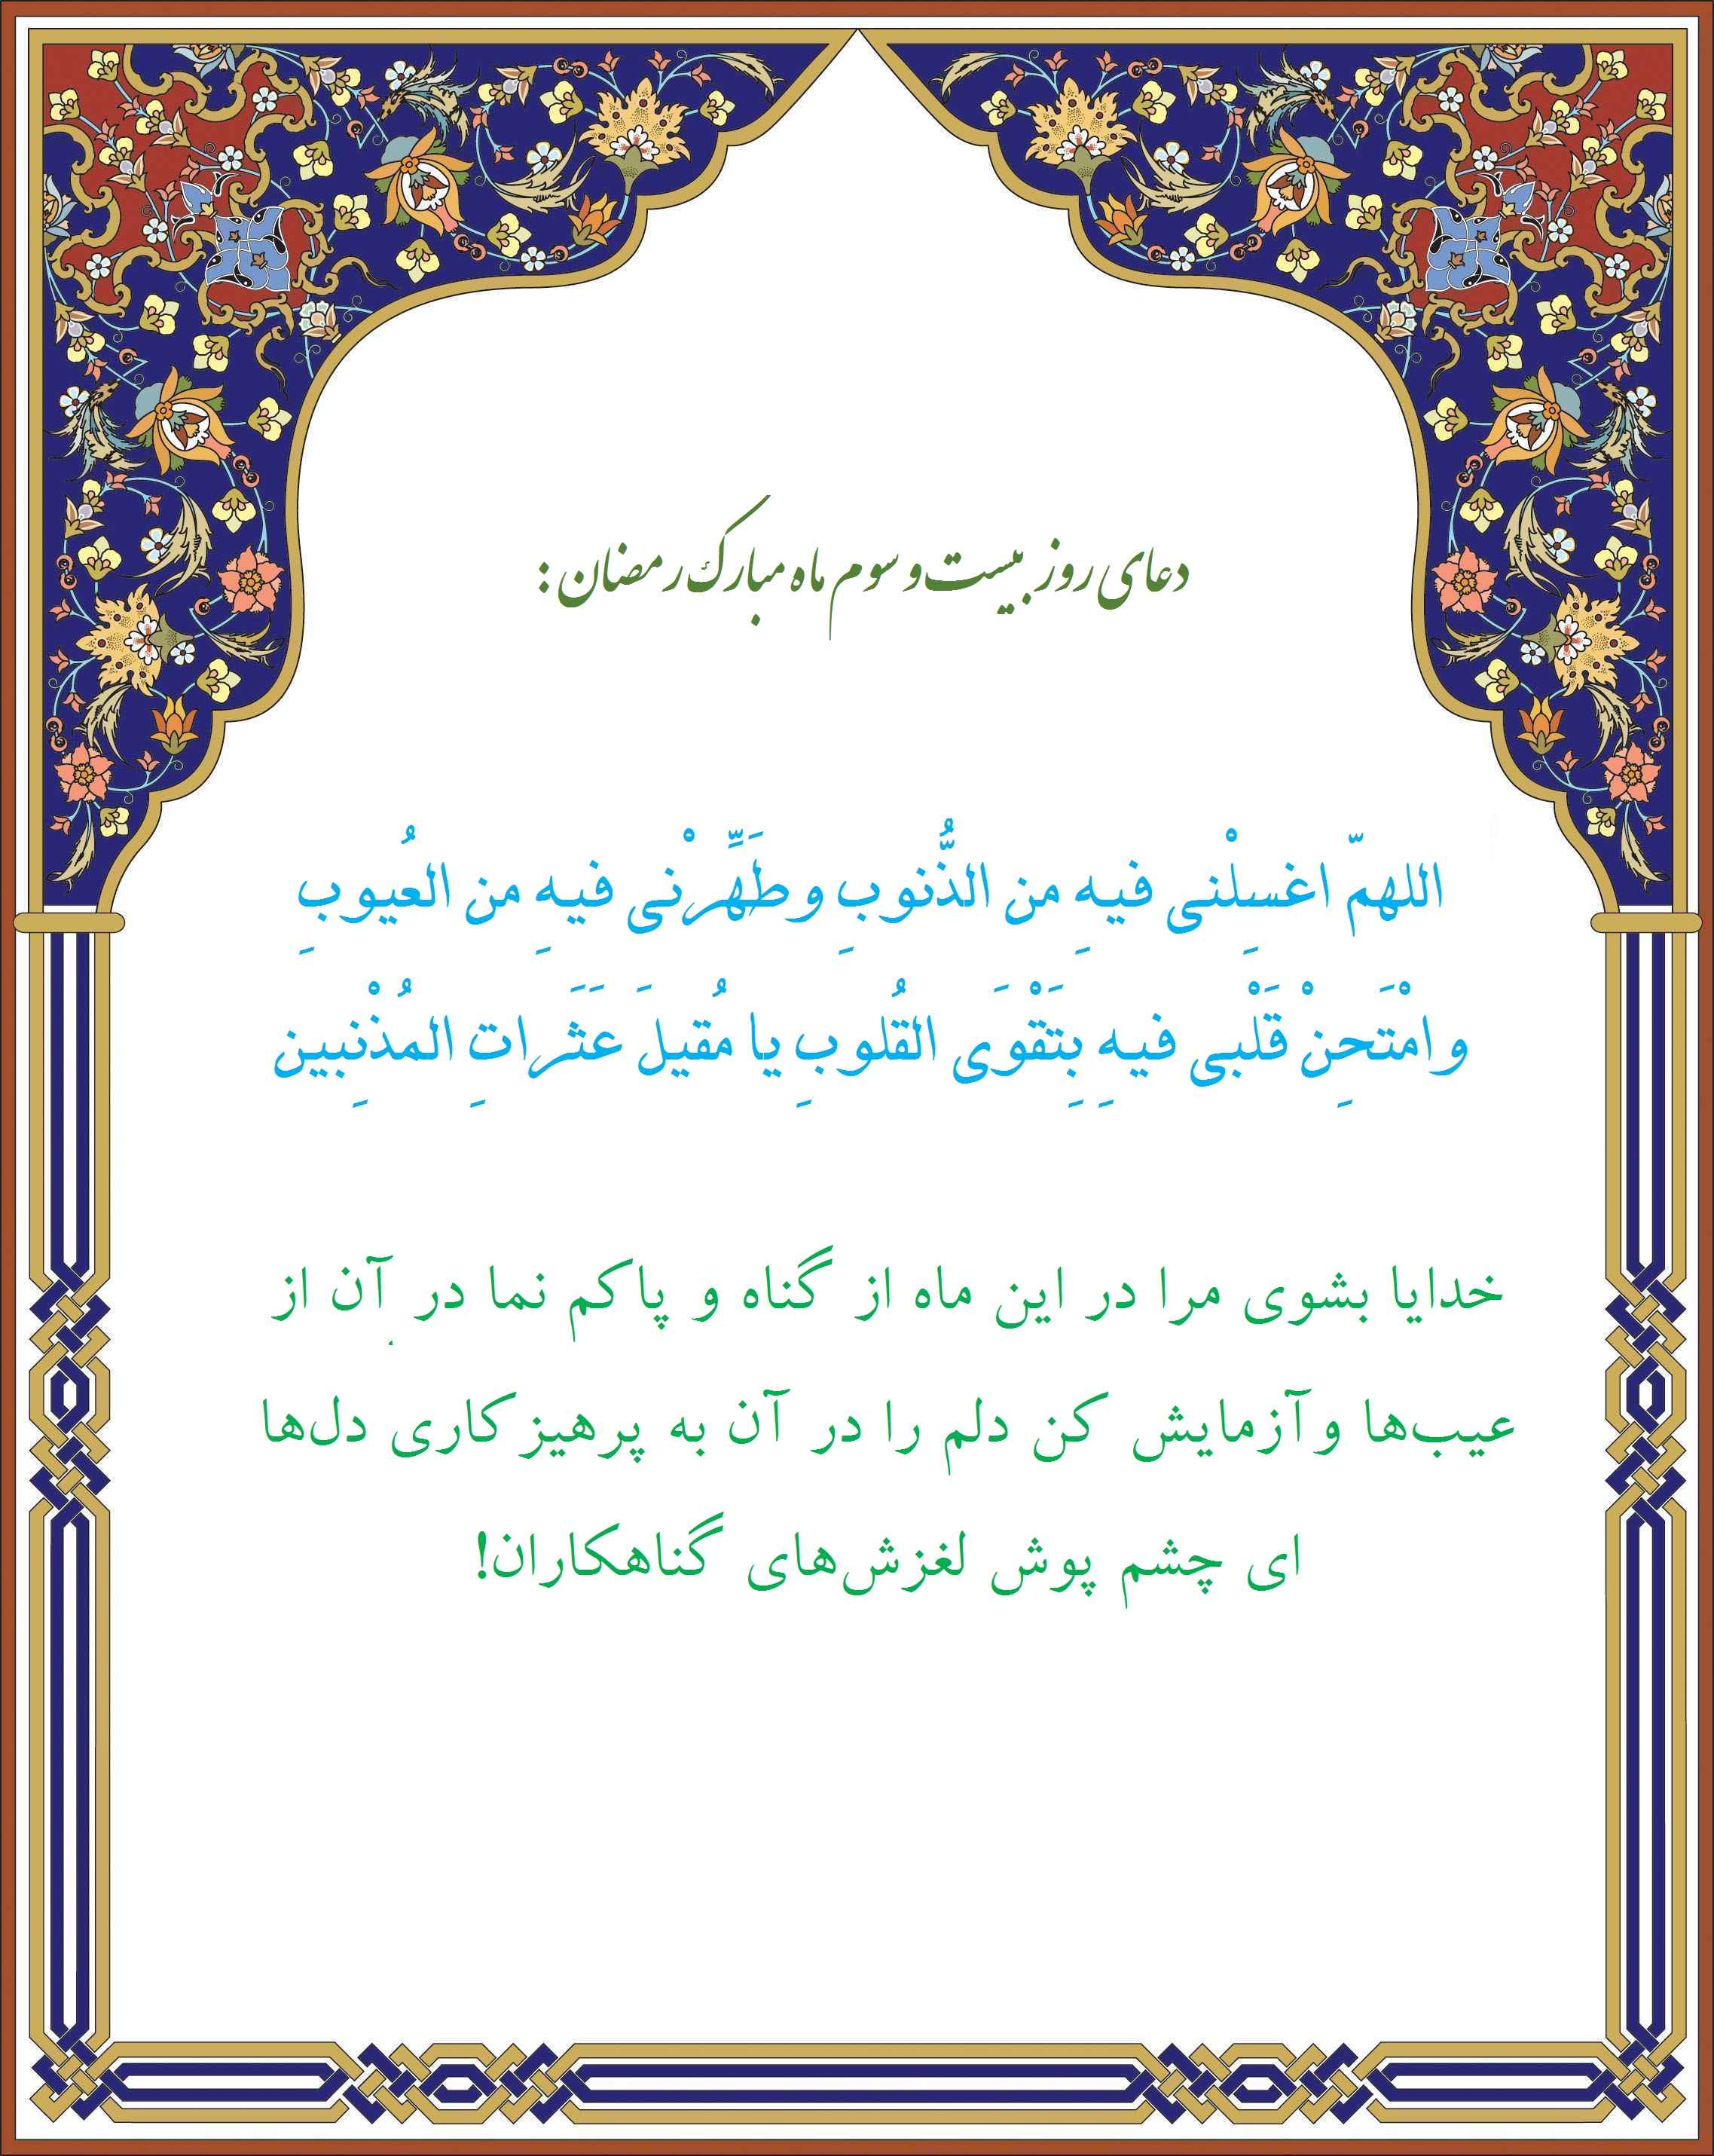 دعای روز بیست و سوم ماه مبارک رمضان :
اللهمّ اغسِلْنی فیهِ من الذُّنوبِ و طَهِّرْنی فیهِ من العُیوبِ
و امْتَحِنْ قَلْبی فیهِ بِتَقْوَی القُلوبِ یا مُقیلَ عَثَراتِ المُذْنِبین
خدایا بشوی مرا در این ماه از گناه و پاکم نما در آن از
عیب‌ها و آزمایش کن دلم را در آن به پرهیزکاری دل‌ها
ای چشم پوش لغزش‌های گناهکاران!